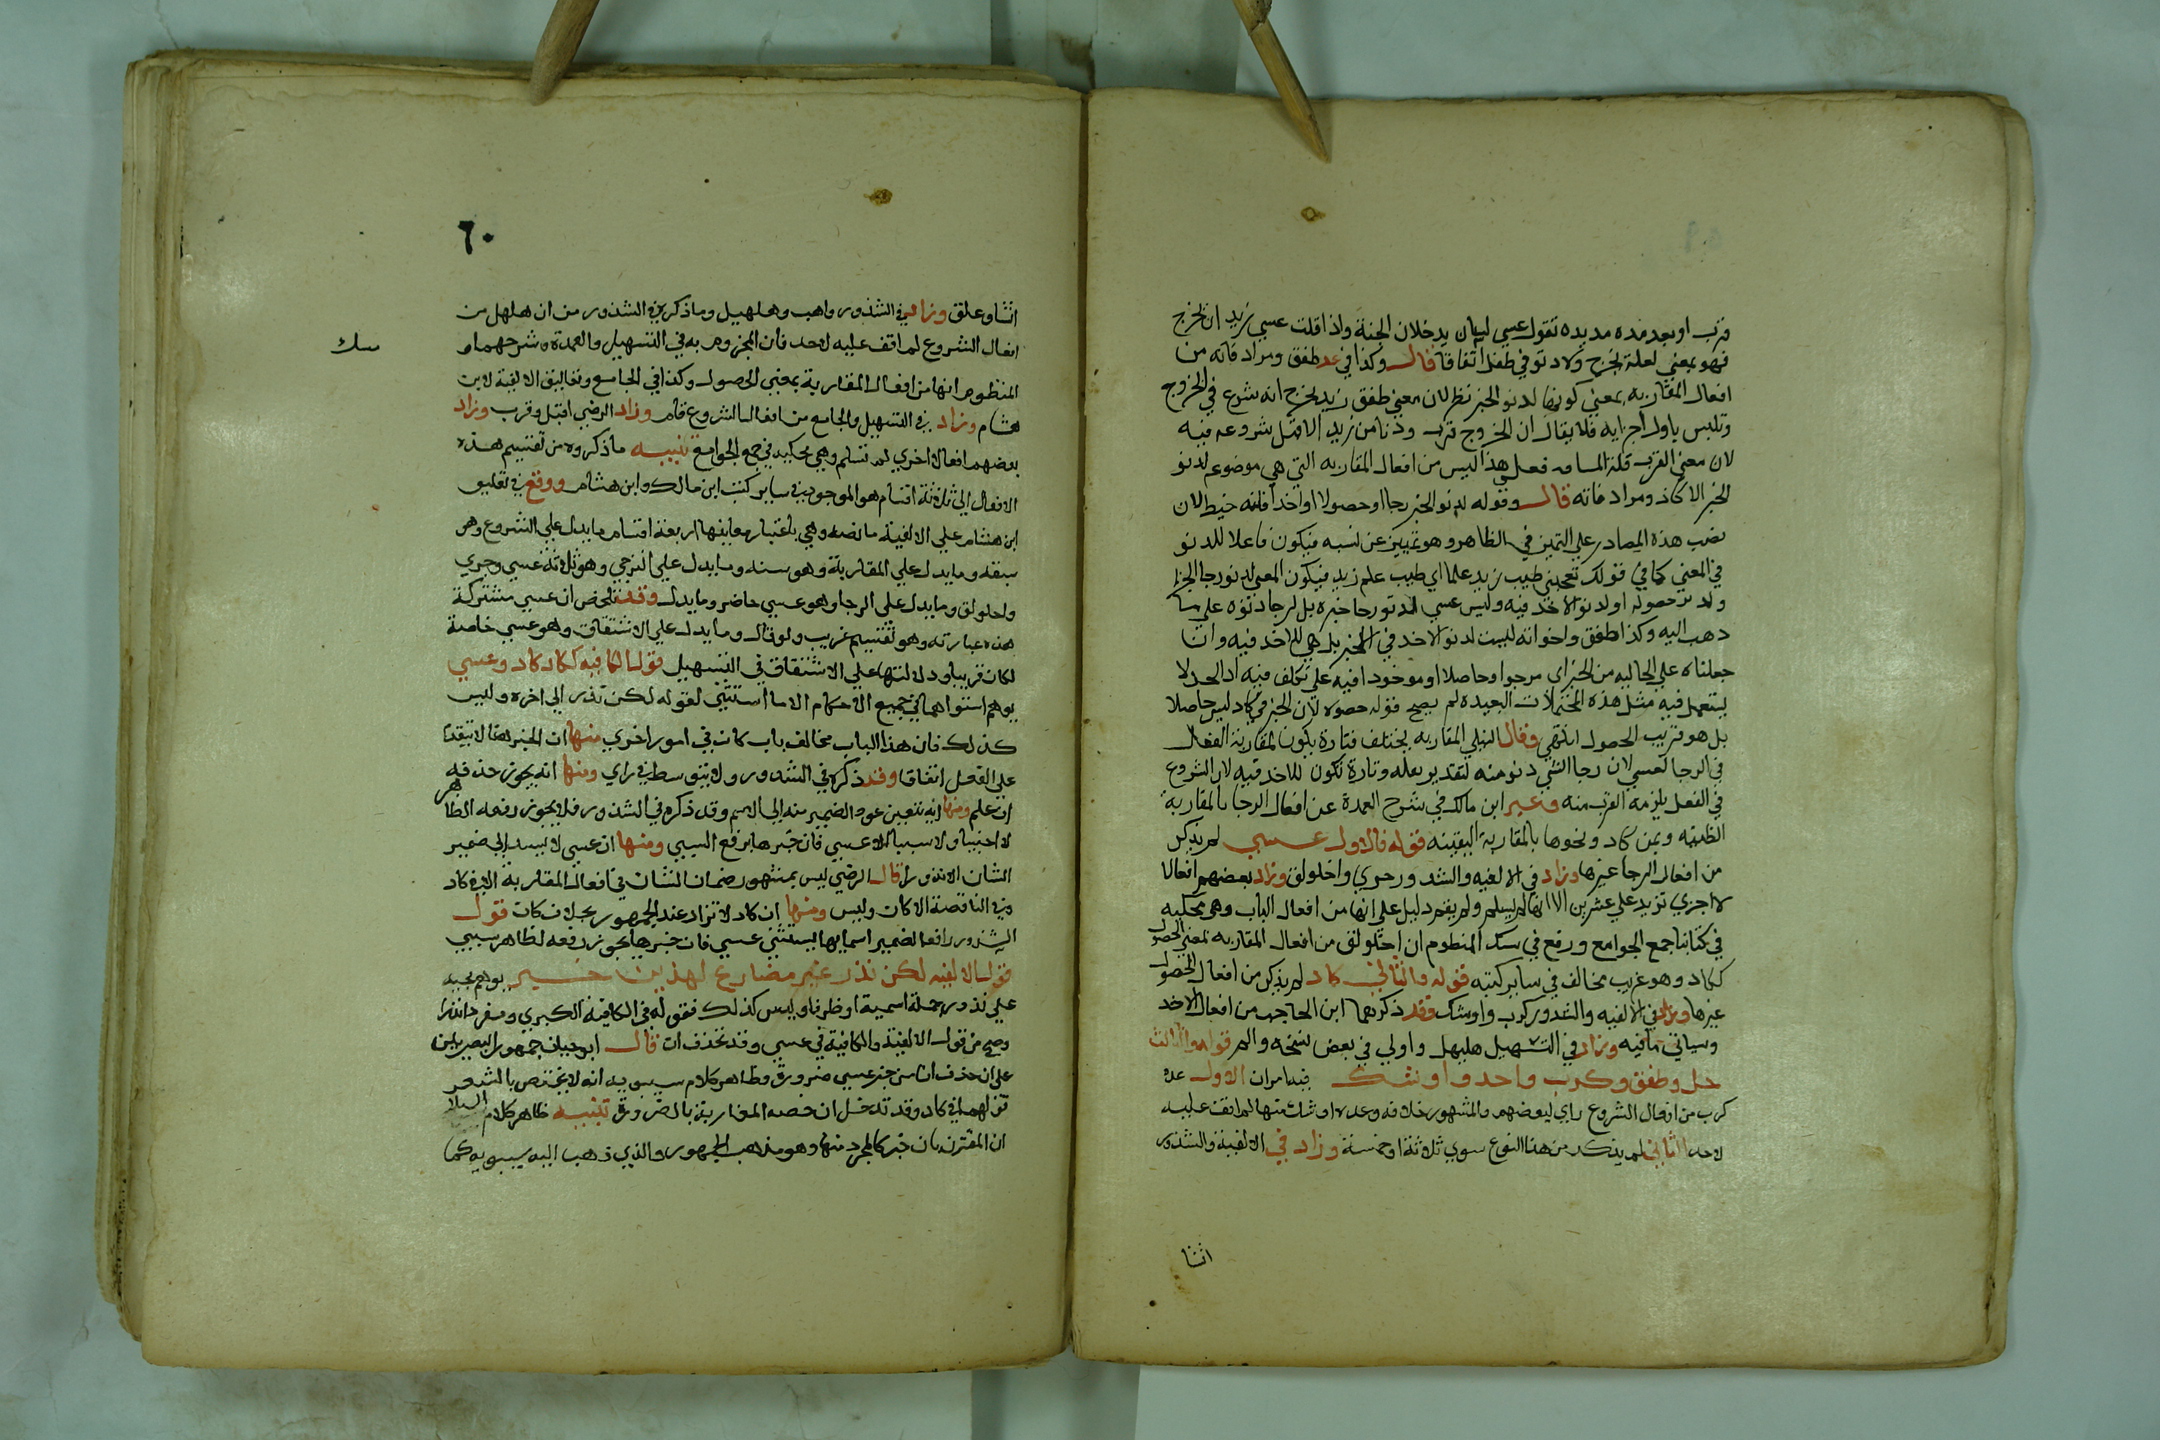 قرب او بعد مده مديده تقول عسي ان يدخلان الجنة واذا قلت عسي زيد ان يخرج
فهو بمعني لعله يخرج ولا دنو في طفق اتفاقا قال وكذا في عد طفق ومرادفاته من
افعال المقاربه بمعني كونها لدنو الخبر نظر لان معني طفق زيد يخرج انه شرع في الخروج
وتلبس باول اجزايه فلا يقال ان الخروج قرب ودنا من زيد الا قبل شروعه فيه
لان معني القرب قلة المسافه فعلي هذا ليس من افعال المقاربه التي هي موضوعه لدنو
الخبر الا كاد ومرادفاته قال وقوله لدنو الخبر رجا او حصولا او اخذا فيه خبط لان
نصب هذه المصادر علي التمييز في الظاهر وهو تمييز عن نسبه فيكون فاعلا للدنو
في المعني كما في قولك تعجبني طيب زيد علما اي طيب علم زيد فيكون المعني لدنو رجا الخبر
ولدنو حصوله او لدنو الاخذ فيه وليس عسي لدنو رجا خبره بل لرجا دنوه علي ما
ذهب اليه وكذا طفق واخواته ليست لدنو الاخذ في الخبر بل هي للاخذ فيه وان
جعلناه علي الحاليه من الخبر اي مرجوا وحاصلا او موخودا فيه علي تكلف فيه اذ الحد لا
يستعمل فيه مثل هذه المحتملات البعيده لم يصح قوله حصولا لان الخبر في كاد ليس حاصلا
بل هو قريب الحصول انتهي وقال النيلي المقاربه يختلف فتارة يكون لمقاربة الفعل
في الرجا كعسي لان رجا الشي دنو منه لتقدير فعله وتارة تكون للاخذ فيه لان الشروع
في الفعل يلزمه القرب منه وعبر ابن مالك في شرح العمدة عن افعال الرجا بالمقاربة
الظنيه وعن كاد ونحوها بالمقاربة اليقينه قوله فالاول عسي لم يذكر
من افعال الرجا غيرها وزاد في الالفيه والشذور حري واخلولق وزاد بعضهم افعالا
اخري تزيد علي عشرين الا انها لم يسلم ولم يقم دليل علي انها من افعال الباب وهي محكيه
في كتابنا جمع الجوامع ووقع في سبك المنظوم ان اخلولق من افعال المقاربه بمعني الحصول
ككاد وهو غريب مخالف في ساير كتبه قوله والثاني كاد لم يذكر من افعال الحصول
غيرها وزاد في الالفيه والشذور كرب واوشك وقد ذكرهما ابن الحاجب من افعال الاخذ
وسياتي ما فيه وزاد في التسهيل هلهل واولي في بعض نسخه والم قوله والثالث
جعل وطفق وكرب واخذ واوشك فيه امران الاول عده
كرب من افعال الشروع راي لبعضهم والمشهور خلافه وعده اوشك منها لم اقف عليه
لاحد الثاني لم يذكر من هذا النوع سوي ثلاثة او خمسة وزاد في الالفية والشذور
انشا
٦٠
انشا وعلق وزاد في الشذور واهب وهلهل وما ذكره في الشذور من ان هلهل من
افعال الشروع لم اقف عليه لاحد فان المجزوم به في التسهيل والعمدة وشرحهما و
سبك
المنظوم انها من افعال المقاربة بمعني الحصول وكذا في الجامع وتعاليق الالفية لابن
هشام وزاد في التسهيل والجامع من افعال الشروع قام وزاد الرضي اقبل وقرب وزاد
بعضهم افعالا اخري لم تسلم وهي محكيه في جمع الجوامع تنبيه ما ذكروه من تقسيم هذه
الافعال الي ثلاثة اقسام هو الموجود في ساير كتب ابن مالك وابن هشام ووقع في تعليق
ابن هشام علي الالفية ما نصه وهي باعتبار معانيها اربعة اقسام ما يدل علي الشروع وهي
سبعه وما يدل علي المقاربة وهو سته وما يدل علي الترجي وهو ثلاثة عسي وحري
واخلولق وما يدل علي الرجا وهو عسي حاضر وما يدل وقف تلخص ان عسي مشتركة
هذه عبارته وهو تقسيم غريب ولو قال وما يدل علي الاشفاق وهو عسي خاصة
لكان قريبا ودلالتها علي الاشفاق في التسهيل قول الكافيه ككاد كاد وعسي
يوهم استواهما في جميع الاحكام الا ما استثني لقوله لكن نذر الي اخره وليس
كذلك فان هذا الباب مخالف باب كان في امور اخري منها ان الخبر هنا لا يتقدم
علي الفعل اتفاقا وقد ذكره في الشذور ولا يتوسط في راي ومنها انه يجوز حذفه
ان علم ومنها انه يتعين عود الضمير منه الي الاسم وقد ذكره في الشذور فلا يجوز رفعه الظاهر
لا اجنبيا ولا سببيا الا عسي فان خبرها يرفع السببي ومنها ان عسي لا يسند الي ضمير
الشان الا نذورا قال الرضي ليس بمشهور ضمان الشان في افعال المقاربة الا في كاد
وفي الناقصة الا كان وليس ومنها ان كاد لا تزاد عند الجمهور بخلاف كان قول
الشذور رافعا لضمير اسمايها يستثني عسي فان خبرها يجوز رفعه لظاهر سببي
قول الالفيه لكن نذر غير مضارع لهذين خبر يوهم مجيه
علي نذور جملة اسمية او ظرفا وليس كذلك فقوله في الكافية الكبري ومفردا نذرا
وصح من قول الالفية والكافية في عسي وقد تحذف ان قال ابو حيان جمهور البصريين
علي ان حذف ان من خبر عسي ضرورة وظاهر كلام سيبويه انه لا يختص بالشعر
قولهما في كاد وقد تدخل ان خصه المغاربة بالضرورة تنبيه ظاهر كلام
ان المقترن بان خبر كالمجرد منها وهو مذهب الجمهور والذي ذهب اليه سيبويه كما